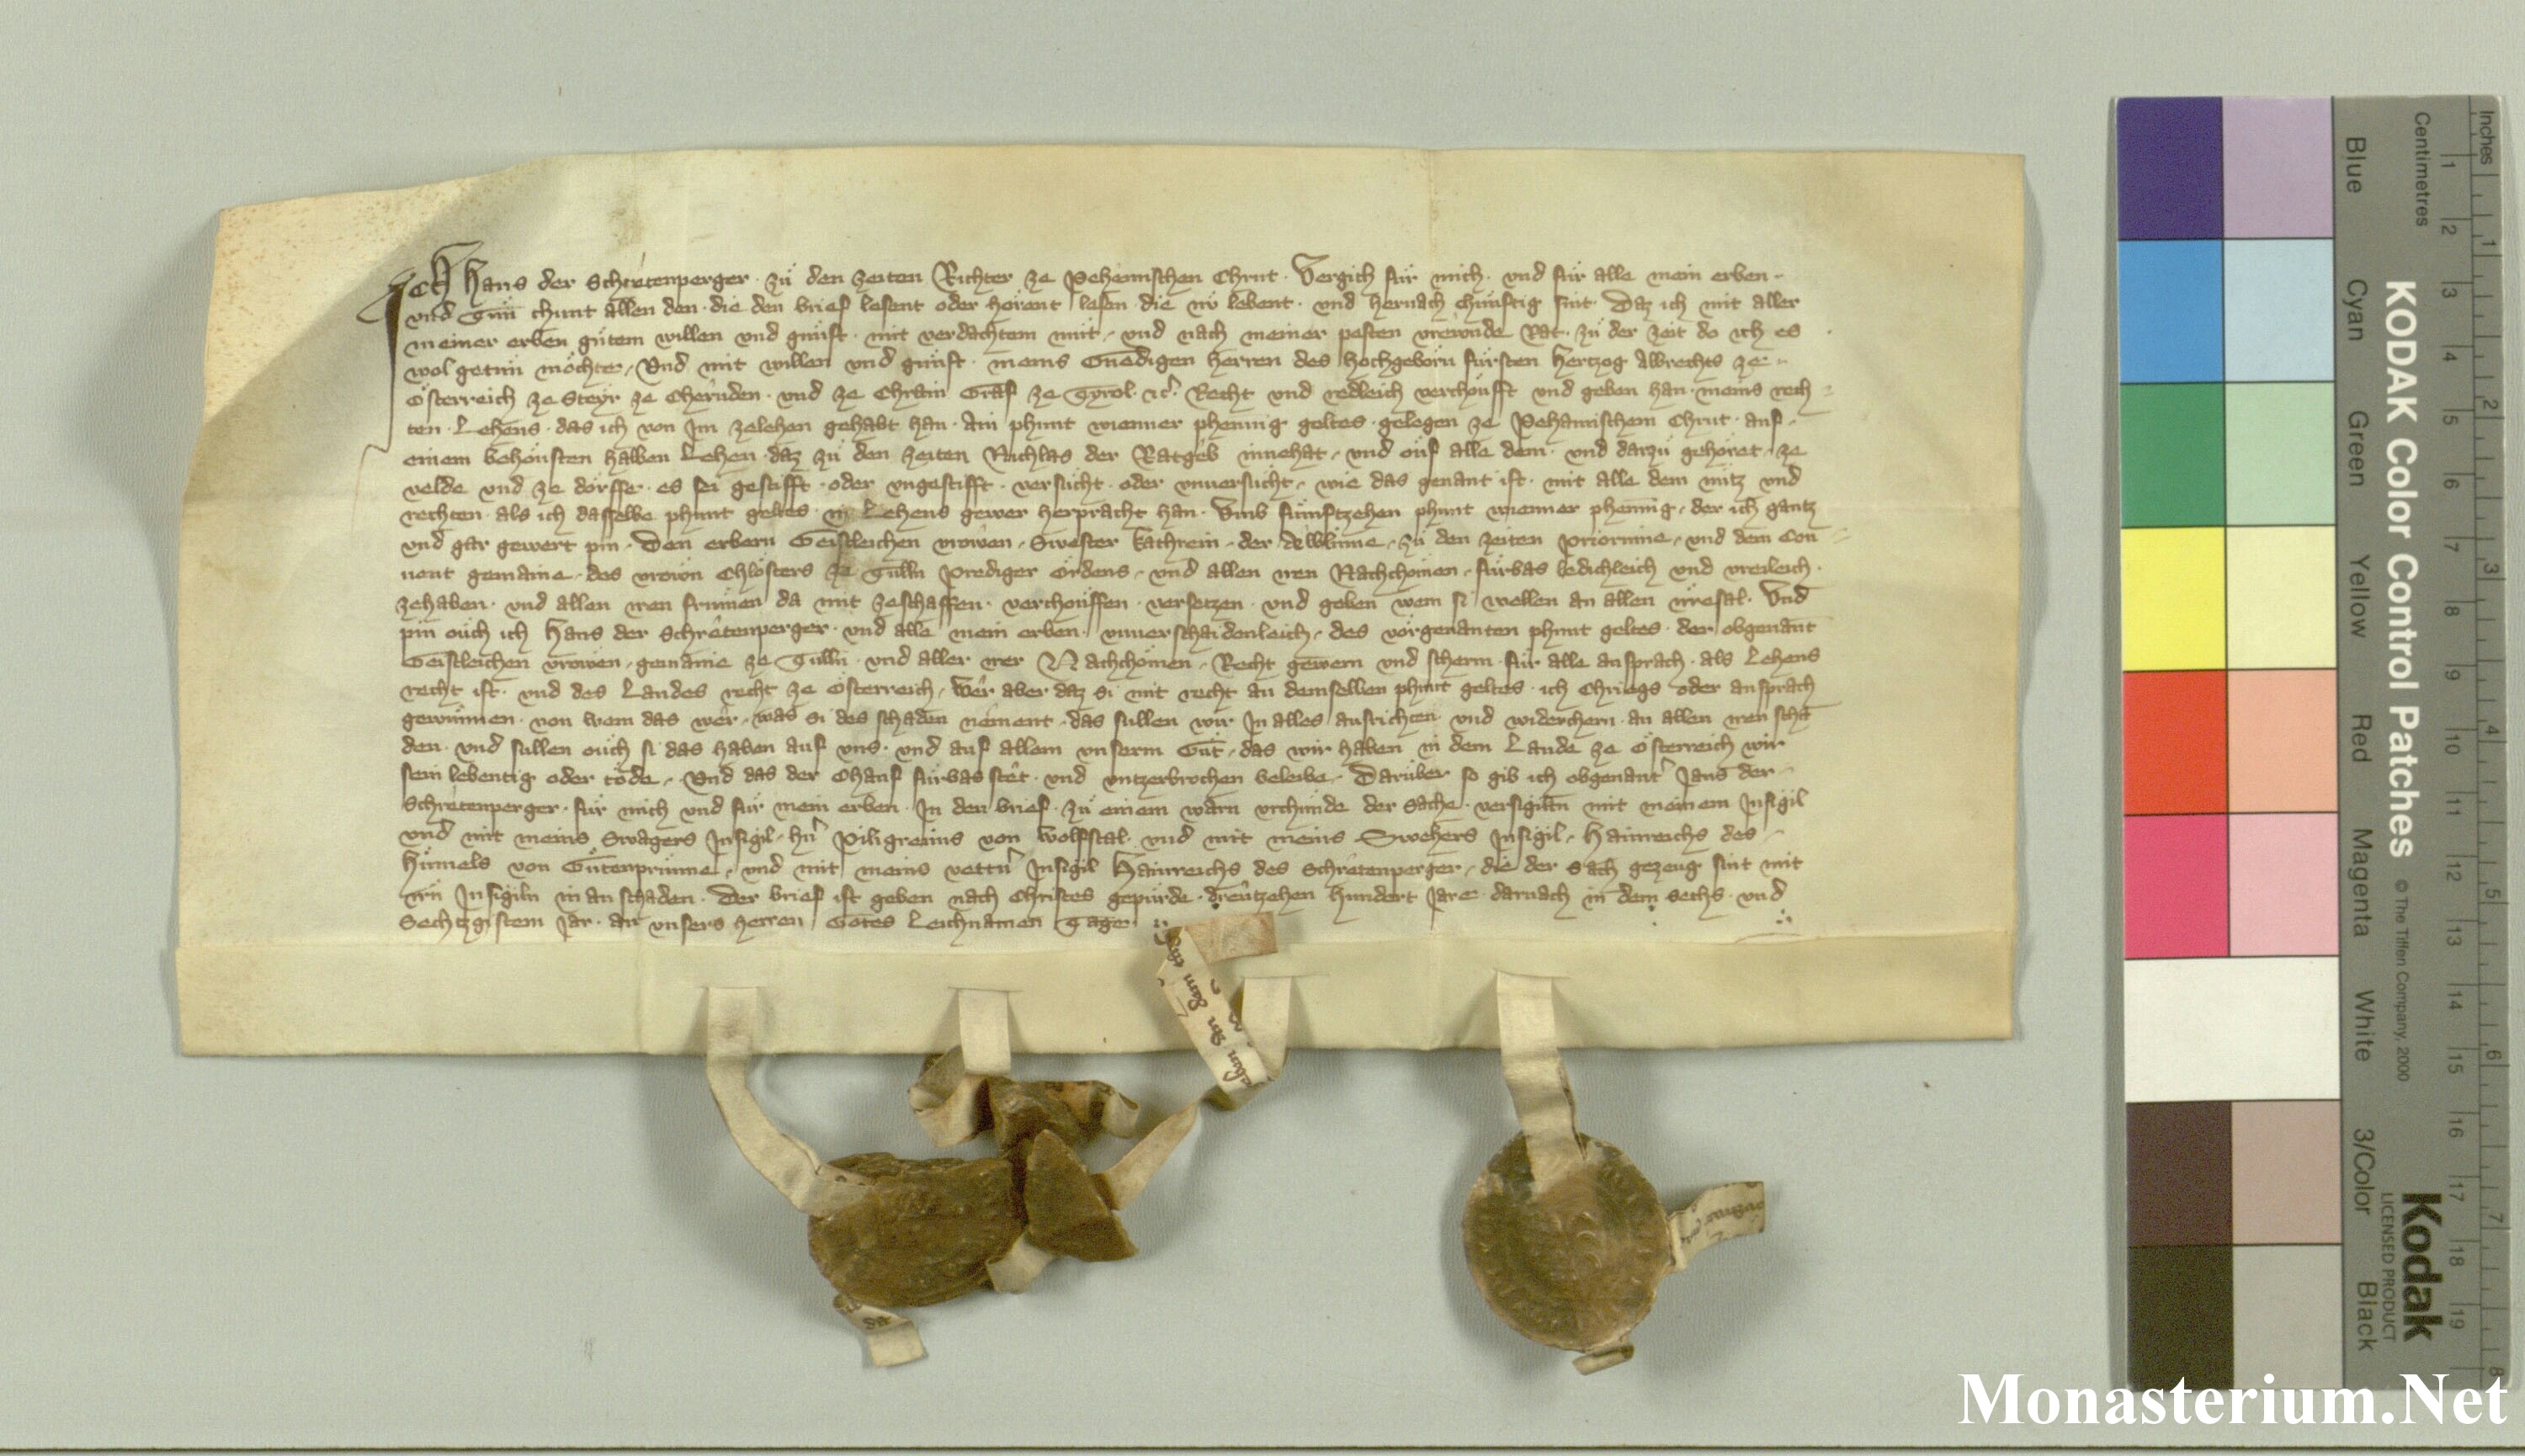 Ich Hans der Schretenperger · zů den zeiten Richter ze Pehemischen Chrut · Vergich für mich · vnd für alle mein erben ·
vnd Tůn chunt allen den · die den brief lesent oder hörent lesen die nv lebent · vnd hernach chünftig sint · Daz ich mit aller
meiner erben gůtem willen vnd gunst · mit verdachtem mut · vnd nach meiner pesten vrewnde Rat · zů der zeit do ich es
wol getun mochte · Vnd mit willen vnd gunst · meins Genedigen herren des hochgeborn fürsten Hertzog Albrechts ze
Österreich ze Steyr ze Chernden · vnd ze Chrain Graf ze Tyrol · etc · Recht vnd redleich verchouft vnd geben han · meins rech
ten · Lehens · das ich von Im zelehen gehabt han · Ain phunt wienner phennig geltes · gelegen ze Pehamischem Chrut · auf
einem behousten halben Lehen · daz zů den zeiten Nichlas der Ratgeb innehat · vnd ouf alle dem · vnd darzů gehöret · ze
velde vnd ze dörffe · es sei gestifft · oder vngestifft · versücht · oder vnuersücht · wie das genant ist · mit alle dem nütz vnd
rechten · als ich dasselbe phunt geltes · in Lehens gewer herpracht han · Vmb fünftzehen phunt wienner phennig · der ich gantz
vnd gar gewert pin · Den erbern Geistleichen vrowen · Swester Kathrein · der · zů den zeiten Priorinne · vnd dem Con
uent gemaine · des vrown Chlosters ze Tulln Prediger Ordens · vnd allen iren Nachchomen · fürbas ledichleich vnd vreileich ·
zehaben · vnd allen iren frumen da mit zeschaffen · verchouffen · versetzen · vnd geben wem si wellen an allen irresal · Vnd
pin ouch ich Hans der Schretenperger · vnd alle mein erben · vnuerschaidenleich · des vorgenanten phunt geltes · der obgenant
Geistleichen vrowen · gemaine ze Tulln · vnd aller irer Nachchomen · Recht gewern vnd scherm · für alle ansprach · als Lehens
recht ist · vnd des Landes recht ze Österreich · Wer aber daz si mit recht an demselben phunt geltes · ich chriegs oder ansprach
gewunnen · von wem das wer · was si des schaden nement · das sullen wir In alles ausrichten vnd widerchern · an allen iren scha
den · vnd sullen ouch si das haben auf vns · vnd auf allem vnserm Gut · das wir haben in dem Lande ze Österreich wir
sein lebentig oder tode · Vnd das der Chauf fürbas stet · vnd vntzerbrochen beleibe · Darüber so gib ich obgenant Jans der
Schretenperger · für mich vnd für mein erben · In den brief · zů einem warn vrchünde der Sache · versigiltn mit meinem Insigil
vnd mit meins Swagers Insigil · hern Piligreims von Wolfstal · vnd mit meins Swehers Insigil · Hainreichs des
Hümels von Gütenprunne · vnd mit meins vettern Insigil Hainreichs des Schretenperger · die der Sach gezeug sint mit
irn Insigiln in an schaden · Der brief ist geben nach Christes gepürde · dreutzehen hundert Jare darnach in dem sechs · vnd
Sechtzgistem Jar · an vnsers herren Gotes Leichnamen Tage
KODAK Color Control Patches
© The Tiffen Company, 2000
Kodak
LICENSED PRODUCT
Inches
Centimetres
Blue
Cyan
Green
Yellow
Red
Magenta
White
3/Color
Black
1 2 3 4 5 6 7 8 9 10 11 12 13 14 15 16 17 18 19
1 2 3 4 5 6 7 8
Monasterium.Net